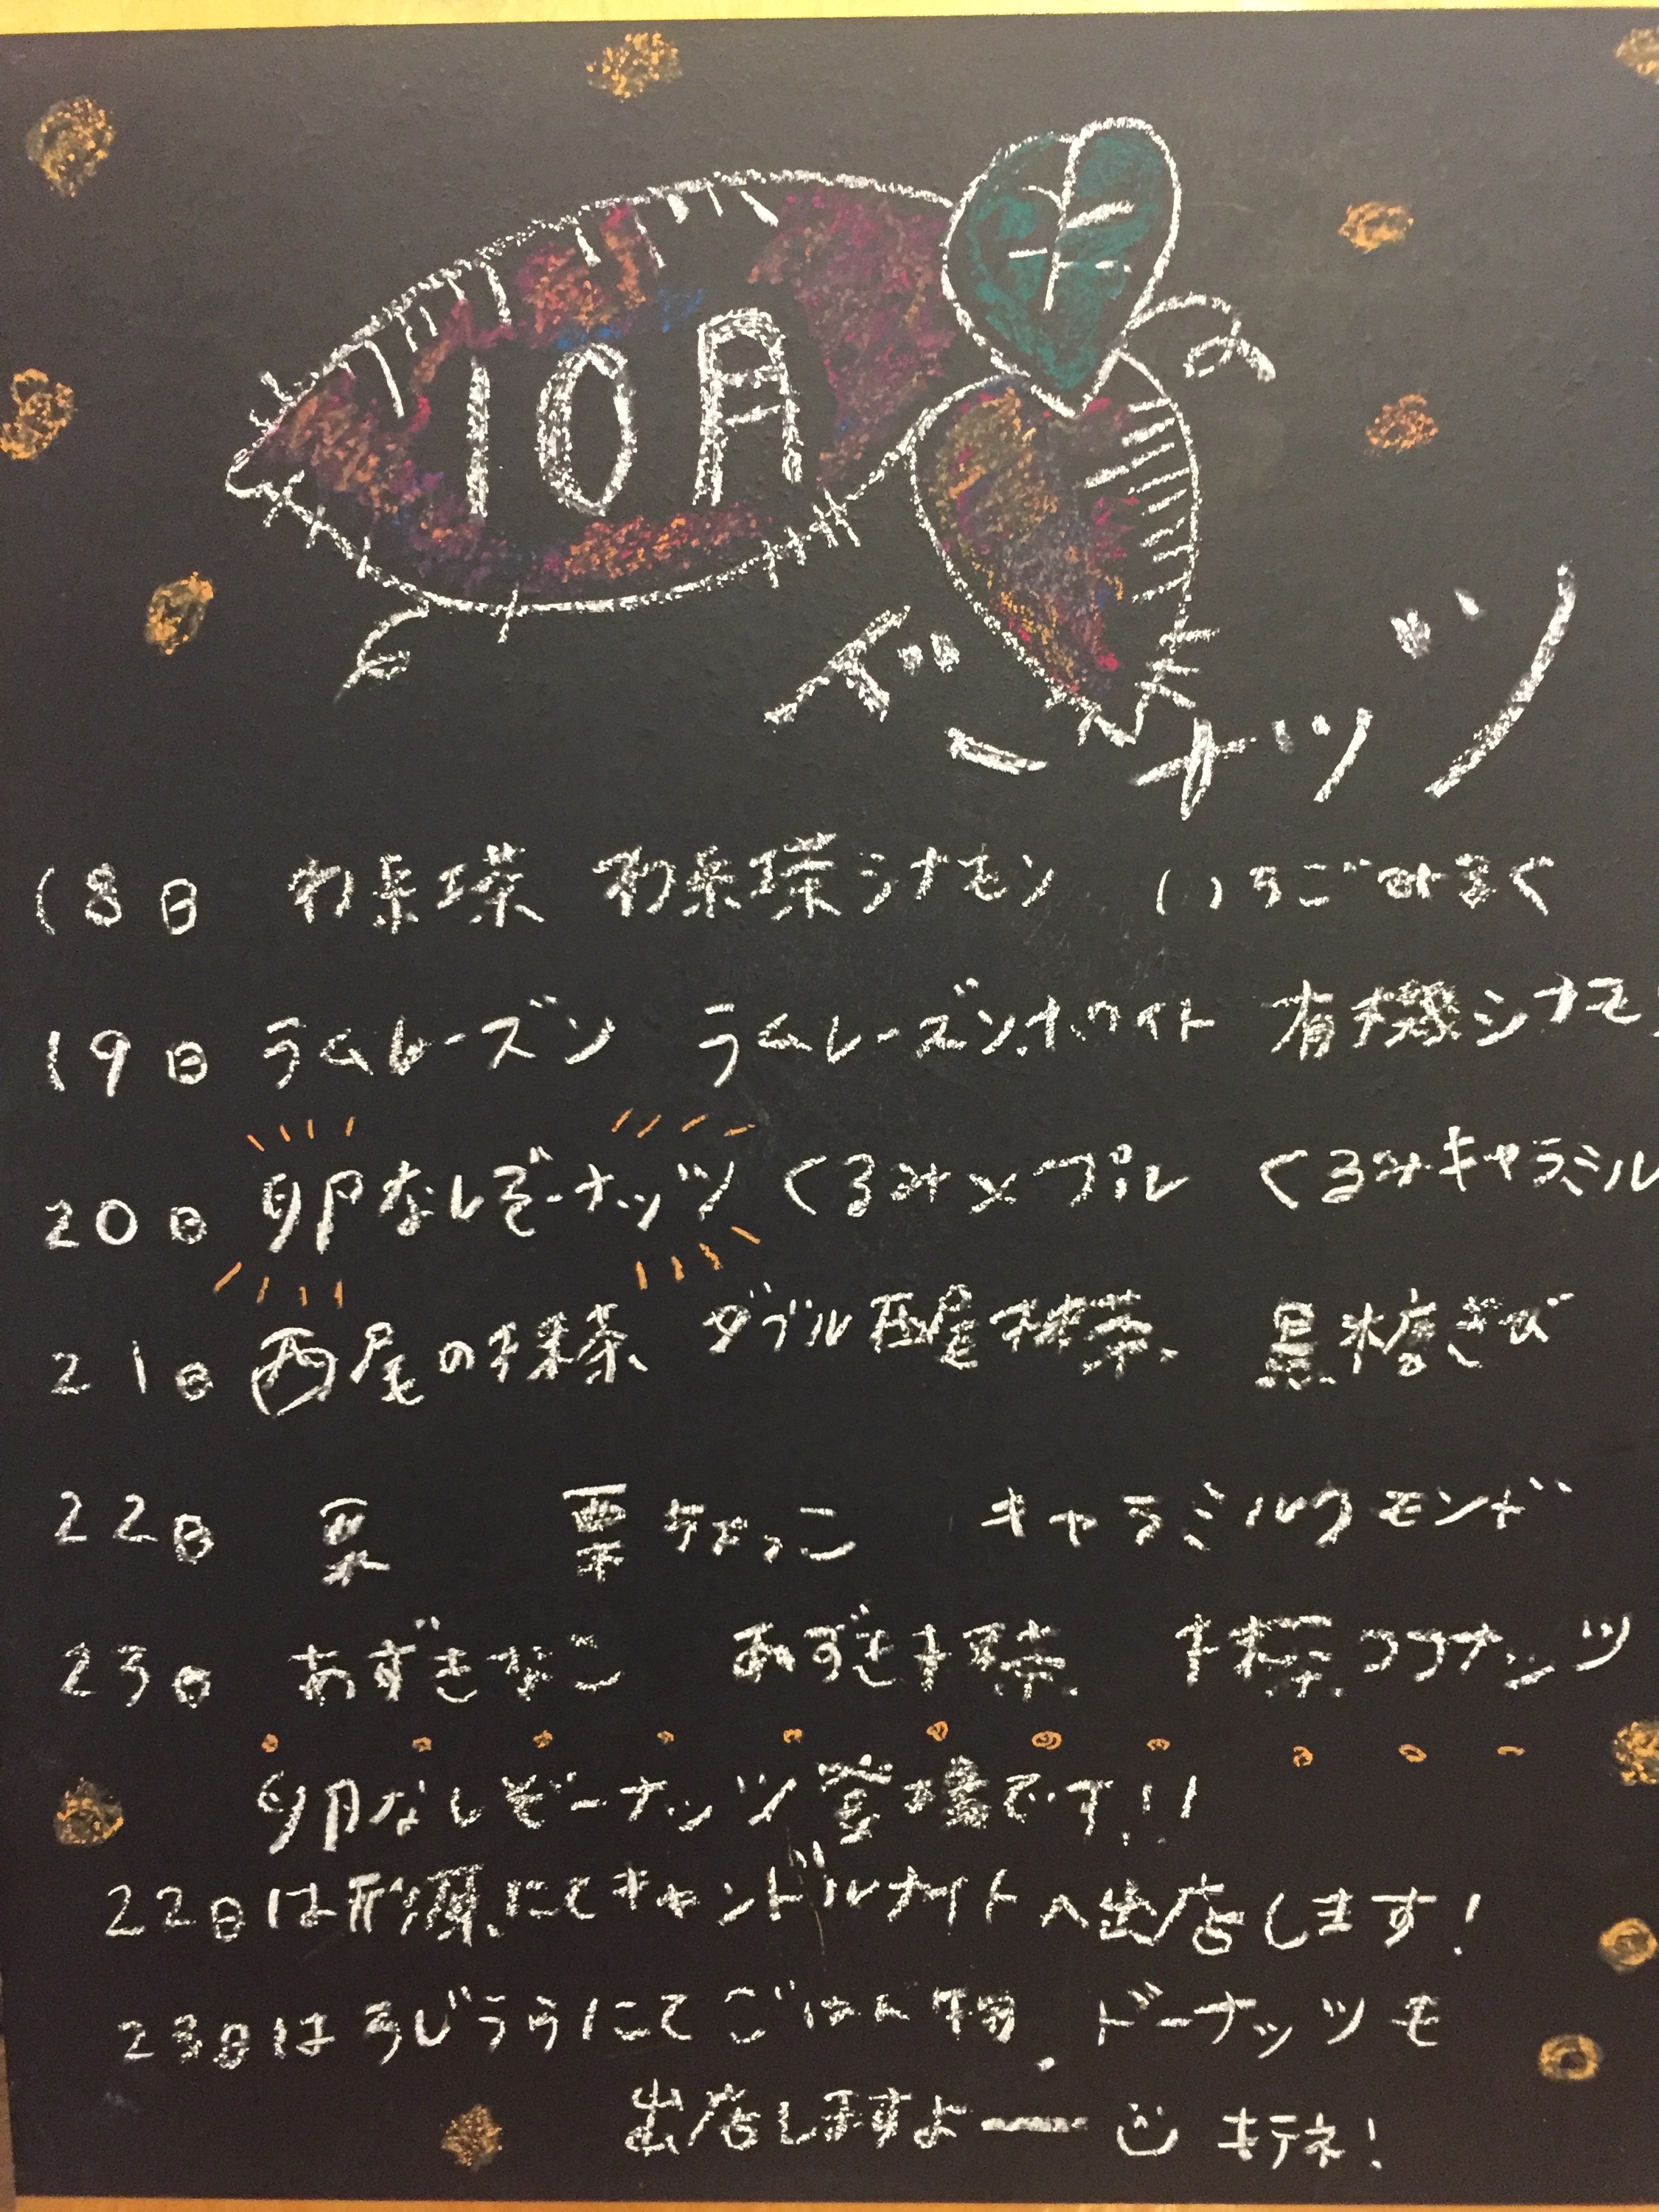 10月
ドーナッツ
18日 和紅茶 和紅茶シナモン いちごみるく
19日 ラムレーズン ラムレーズンホワイト 有機シナモン
20日 卵なしどーナッツ くるみメープル くるみキャラミル
21日 西尾の抹茶 ダブル西尾抹茶 黒糖きび
22日 栗 栗ちょっこ キャラミルクモンド
23日 あずきなこ あずき抹茶 抹茶ココナッツ
卵なしどーナッツ登場です!!
22日は形原にてキャンドルナイトへ出店します!
23日は うじうらにてごはん物、ドーナッツも
出店しますよー キテネ!